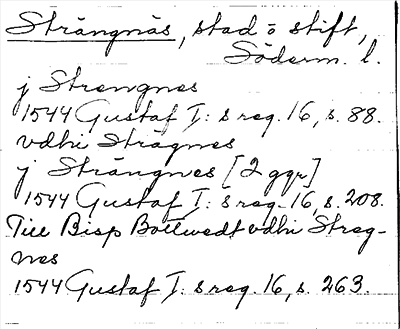 Strängnäs, stad o stift,
Söderm. l.
j Strengnes
1544 Gustaf I: s reg. 16, s. 88.
vdhi Strägnes
j Strängnes [2 ggr]
1544 Gustaf I: s reg. 16, s. 208.
Till Bisp Botwedt vdhi Streg-
nes
1544 Gustaf I: s reg. 16, s. 263.